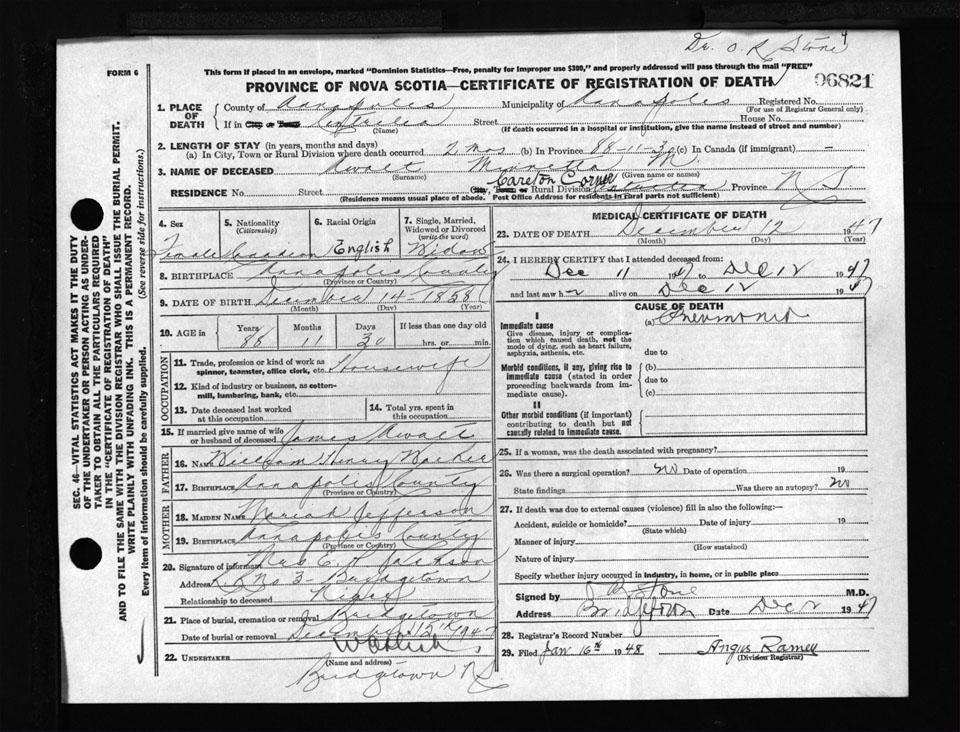 Dr. O. R. Stone
FORM 6
This form if placed in an envelope, marked "Dominion Statistics—Free, penalty for improper use $300," and properly addressed will pass through the mail "FREE"
PROVINCE OF NOVA SCOTIA—CERTIFICATE OF REGISTRATION OF DEATH
06821
1. PLACE OF DEATH
County of Annapolis Municipality of Annapolis Registered No.
(For use of Registrar General only)
If in City or Town Centrelea Street House No.
(Name) (If death occurred in a hospital or institution, give the name instead of street and number)
2. LENGTH OF STAY (in years, months and days)
(a) In City, Town or Rural Division where death occurred 2 mos (b) In Province 88-11-30 (c) In Canada (if immigrant) -
3. NAME OF DECEASED Minnetta
(Surname) (Given name or names)
RESIDENCE No. Street City, Town or Rural Division Carleton Corner Province N S
(Residence means usual place of abode. Post Office Address for residents in rural parts not sufficient)
4. Sex
Female
5. Nationality
(Citizenship)
Canadian
6. Racial Origin
English
7. Single, Married, Widowed or Divorced
(write the word)
Widow
8. BIRTHPLACE Annapolis County
(Province or Country)
9. DATE OF BIRTH December 14-1858
(Month) (Day) (Year)
10. AGE in Years Months Days If less than one day old
88 11 30 hrs. or min.
OCCUPATION
11. Trade, profession or kind of work as spinner, teamster, office clerk, etc. Housewife
12. Kind of industry or business, as cotton-mill, lumbering, bank, etc.
13. Date deceased last worked at this occupation
14. Total yrs. spent in this occupation
15. If married give name of wife or husband of deceased James
FATHER
16. NAME William Henry
17. BIRTHPLACE Annapolis County
(Province or Country)
MOTHER
18. MAIDEN NAME Mariah Jefferson
19. BIRTHPLACE Annapolis County
(Province or Country)
20. Signature of informant Mrs E. H. Jackson
Address R R No 3 - Bridgetown
Relationship to deceased Niece
21. Place of burial, cremation or removal Bridgetown
Date of burial or removal December 15th 1947
22. UNDERTAKER
(Name and address)
Bridgetown N.S.
MEDICAL CERTIFICATE OF DEATH
23. DATE OF DEATH December 12 1947
(Month) (Day) (Year)
24. I HEREBY CERTIFY that I attended deceased from:
Dec 11 1947 to Dec 12 1947
and last saw her alive on Dec 12 1947
CAUSE OF DEATH
I
Immediate cause
Give disease, injury or complication which caused death, not the mode of dying, such as heart failure, asphyxia, asthenia, etc.
(a) Pneumonia
due to
Morbid conditions, if any, giving rise to immediate cause (stated in order proceeding backwards from immediate cause).
(b)
due to
(c)
II
Other morbid conditions (if important) contributing to death but not causally related to immediate cause.
25. If a woman, was the death associated with pregnancy?
26. Was there a surgical operation? No Date of operation 19
State findings Was there an autopsy? No
27. If death was due to external causes (violence) fill in also the following:—
Accident, suicide or homicide? Date of injury 19
(State which)
Manner of injury
(How sustained)
Nature of injury
Specify whether injury occurred in industry, in home, or in public place
Signed by Stone M.D.
Address Bridgetown Date Dec 12 1947
28. Registrar's Record Number
29. Filed Jan 16th 1948 Angus Ramey
(Division Registrar)
SEC. 46—VITAL STATISTICS ACT MAKES IT THE DUTY
OF THE UNDERTAKER OR PERSON ACTING AS UNDER-
TAKER TO OBTAIN ALL THE PARTICULARS REQUIRED
IN THE "CERTIFICATE OF REGISTRATION OF DEATH"
AND TO FILE THE SAME WITH THE DIVISION REGISTRAR WHO SHALL ISSUE THE BURIAL PERMIT.
WRITE PLAINLY WITH UNFADING INK. THIS IS A PERMANENT RECORD.
Every item of information should be carefully supplied. (See reverse side for instructions.)